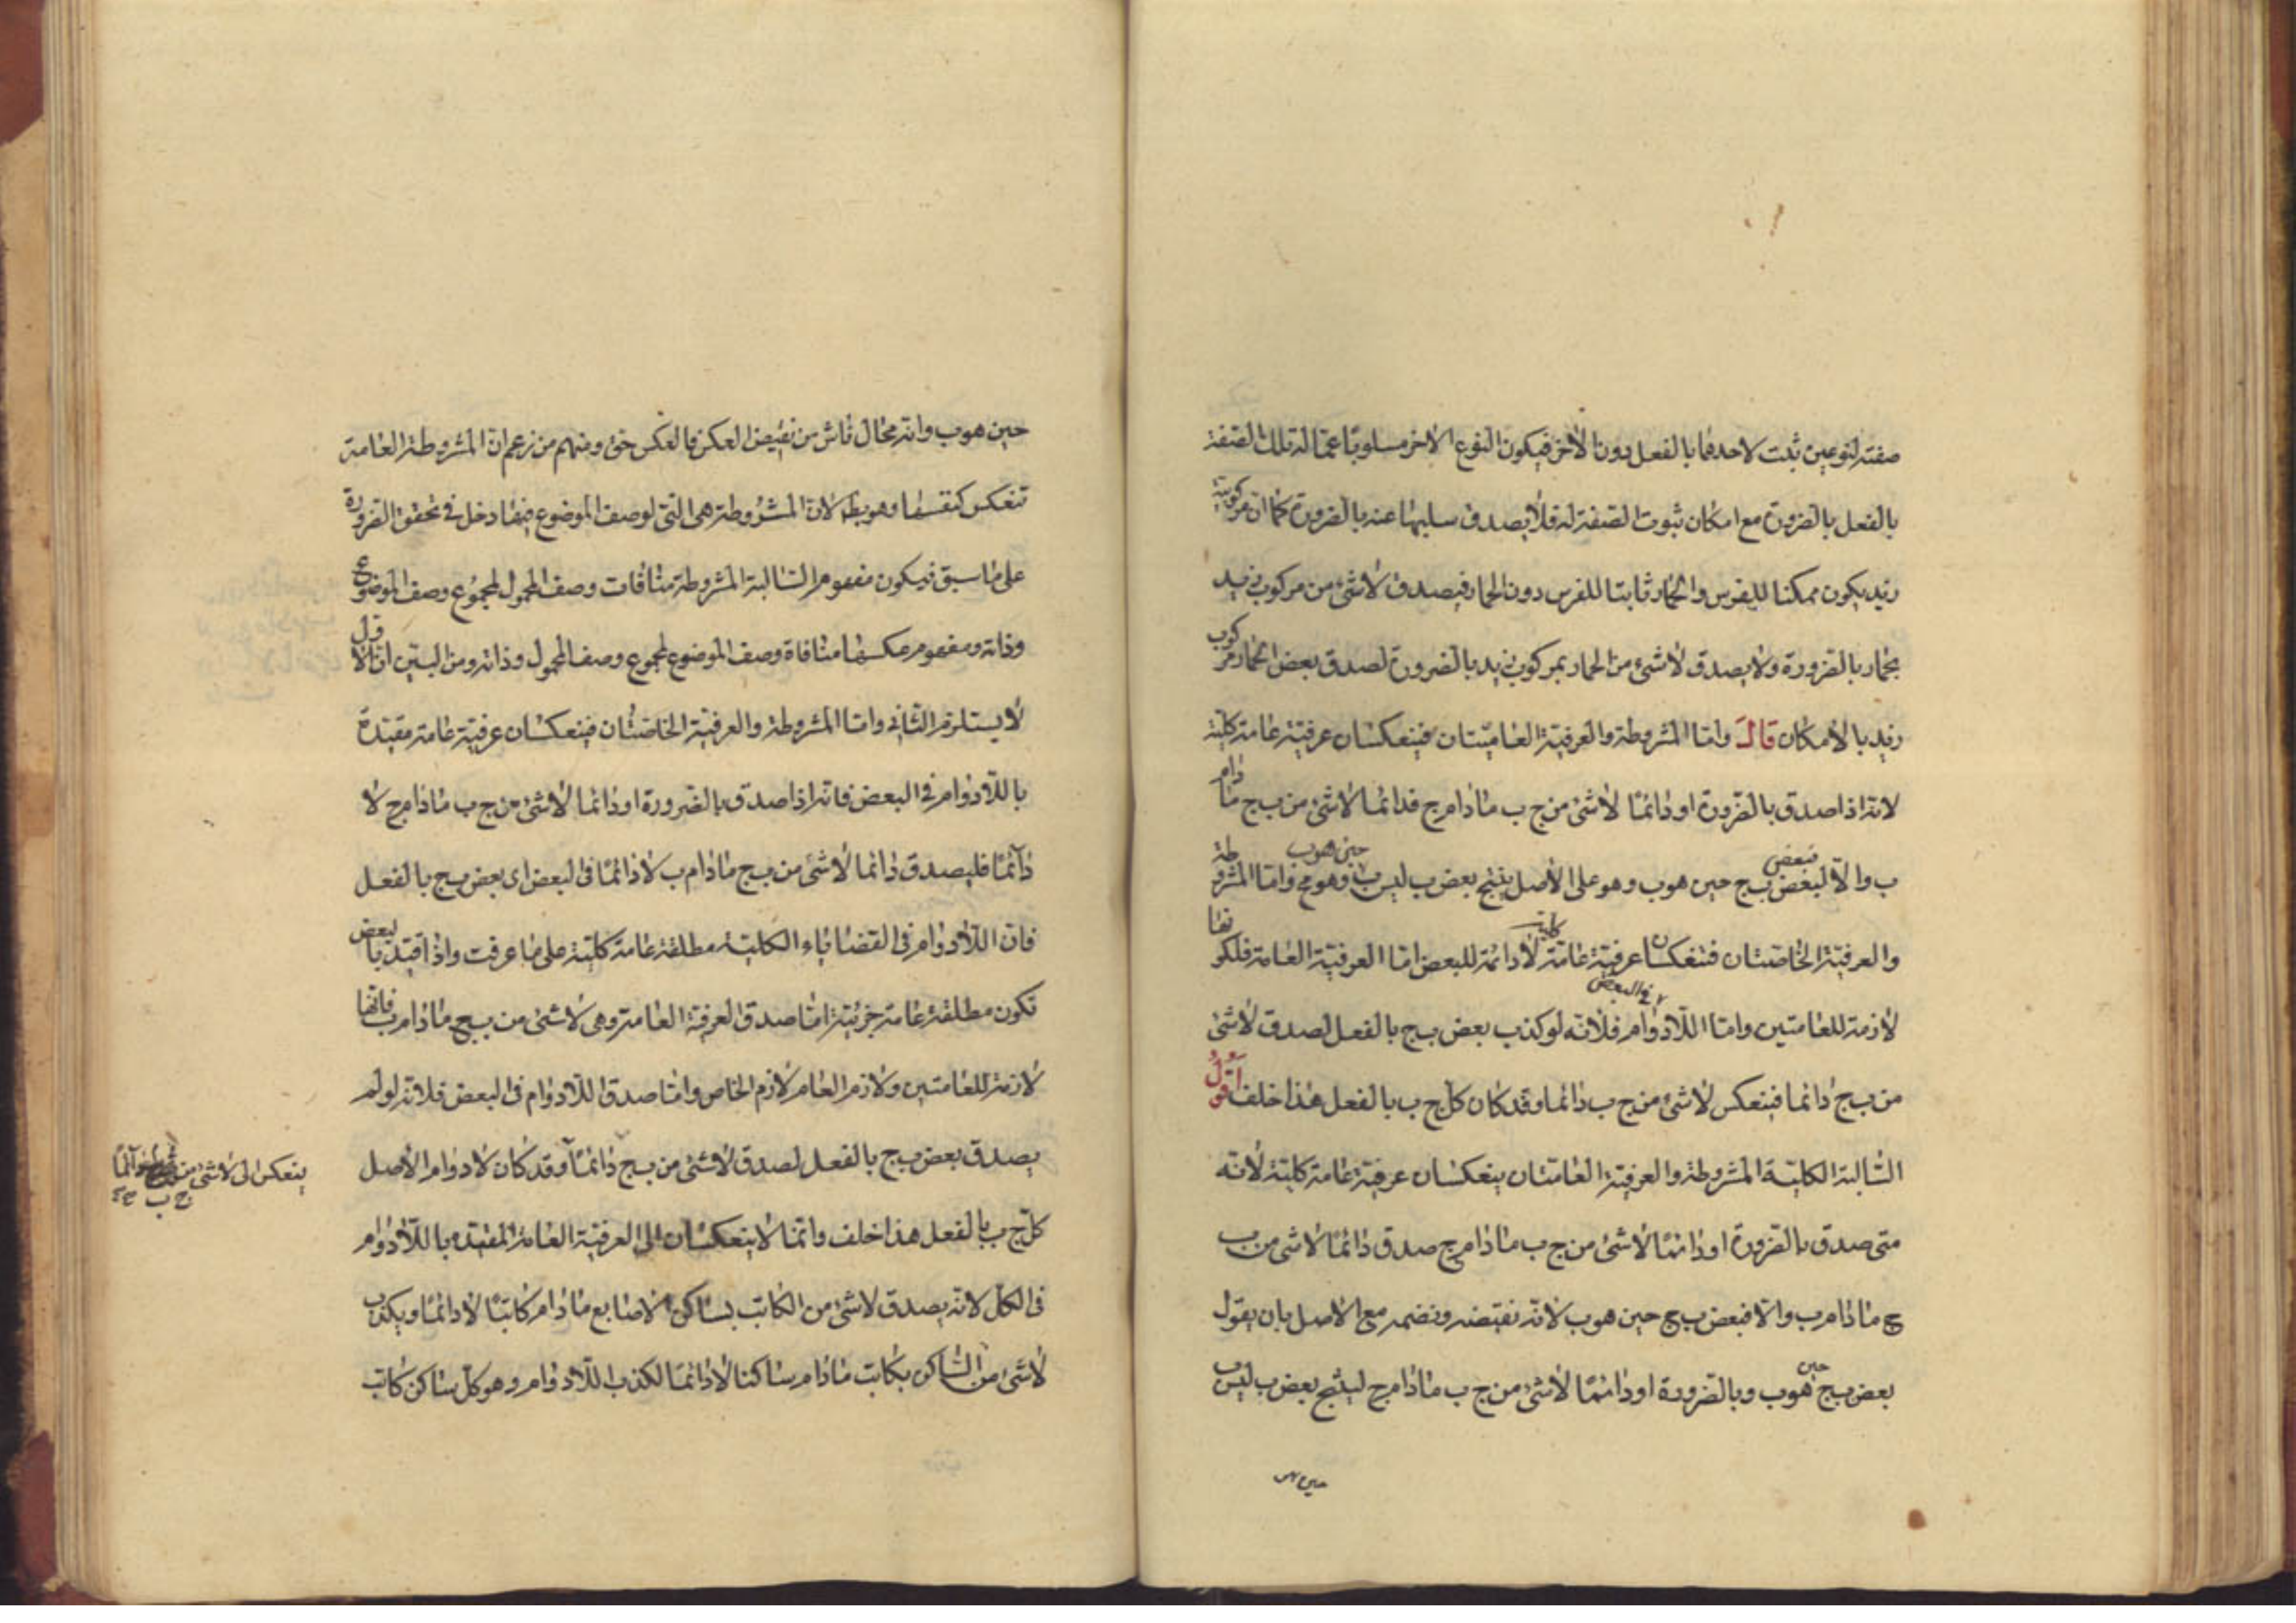 صفته لنوعين ثبت لاحدهما بالفعل دون الاخر فيكون النوع الاخر مسلوبا عما له تلك الصفة
بالفعل بالضرورة مع امكان ثبوت الصفة له فلا يصدق سلبها عنه بالضرورة كما ان مركوبية
زيد يكون ممكنا للفرس والحمار ثابتا للفرس دون الحمار فيصدق لاشئ من مركوب زيد
بحمار بالضرورة ولا يصدق لاشئ من الحمار بمركوب زيد بالضرورة لصدق بعض الحمار مركوب
زيد بالامكان قال واما المشروطة والعرفية العاميتان فينعكسان عرفية عامة كلية
لانه اذا صدق بالضرورة او دائما لاشئ من ج ب مادام ج فدائما لاشئ من ب ج مادام
ب والا لبعض ب ج حين هوب وهو على الاصل ينتج بعض ب ليس ب وهو مح واما المشروطة
فبعض
حين هوب
والعرفية الخاصتان فتنعكسان عرفية عامة لادائمة للبعض اما العرفية العامة فلكونها
كلية
لازمة للعامتين واما اللادوام فلانه لو كذب بعض ب ج بالفعل لصدق لاشئ
في البعض
من ب ج دائما فينعكس لاشئ من ج ب دائما وقد كان كل ج ب بالفعل هذا خلف اقول
السالبة الكلية المشروطة والعرفية العامتان ينعكسان عرفية عامة كلية لانه
متى صدق بالضرورة او دائما لاشئ من ج ب مادام ج صدق دائما لاشئ من ب
ج مادام ب والا فبعض ب ج حين هوب لانه نقيضه ونضمه مع الاصل بان يقول
بعض ب ج حين هوب وبالضرورة او دائما لاشئ من ج ب مادام ج لينتج بعض ب ليس ب
حين هو
حين هوب وانه محال ناش من نقيض العكس فالعكس حق ومنهم من زعم ان المشروطة العامة
تنعكس كنفسها وهو بط لان المشروطة هى التى لوصف الموضوع فيها دخل فى تحقق الضرورة
على ما سبق فيكون مفهوم السالبة المشروطة منافات وصف المحمول لمجموع وصف الموضوع
وذاته ومفهوم عكسها منافاة وصف الموضوع لمجموع وصف المحمول وذاته ومن البين ان الاول
لا يستلزم الثانى واما المشروطة والعرفية الخاصتان فينعكسان عرفية عامة مقيدة
باللادوام فى البعض فانه اذا صدق بالضرورة او دائما لاشئ من ج ب مادام ج لا
دائما فليصدق دائما لاشئ من ب ج مادام ب لا دائما فى البعض اى بعض ب ج بالفعل
فان اللادوام فى القضاياء الكلية مطلقة عامة كلية على ما عرفت واذا قيد بالبعض
تكون مطلقة عامة جزئية اما صدق العرفية العامة وهى لاشئ من ب ج مادام ب فانها
لازمة للعامتين ولازم العام لازم الخاص واما صدق اللادوام فى البعض فلانه لو لم
يصدق بعض ب ج بالفعل لصدق لاشئ من ب ج دائما وقد كان لادوام الاصل
ينعكس الى لاشئ من
ج ب
كل ج ب بالفعل هذا خلف وانما لا ينعكسان الى العرفية العامة المقيده باللادوام
فى الكل لانه يصدق لاشئ من الكاتب بساكن الاصابع مادام كاتبا لادائما ويكذب
لاشئ من الساكن بكاتب مادام ساكنا لادائما لكذب اللادوام وهو كل ساكن كاتب